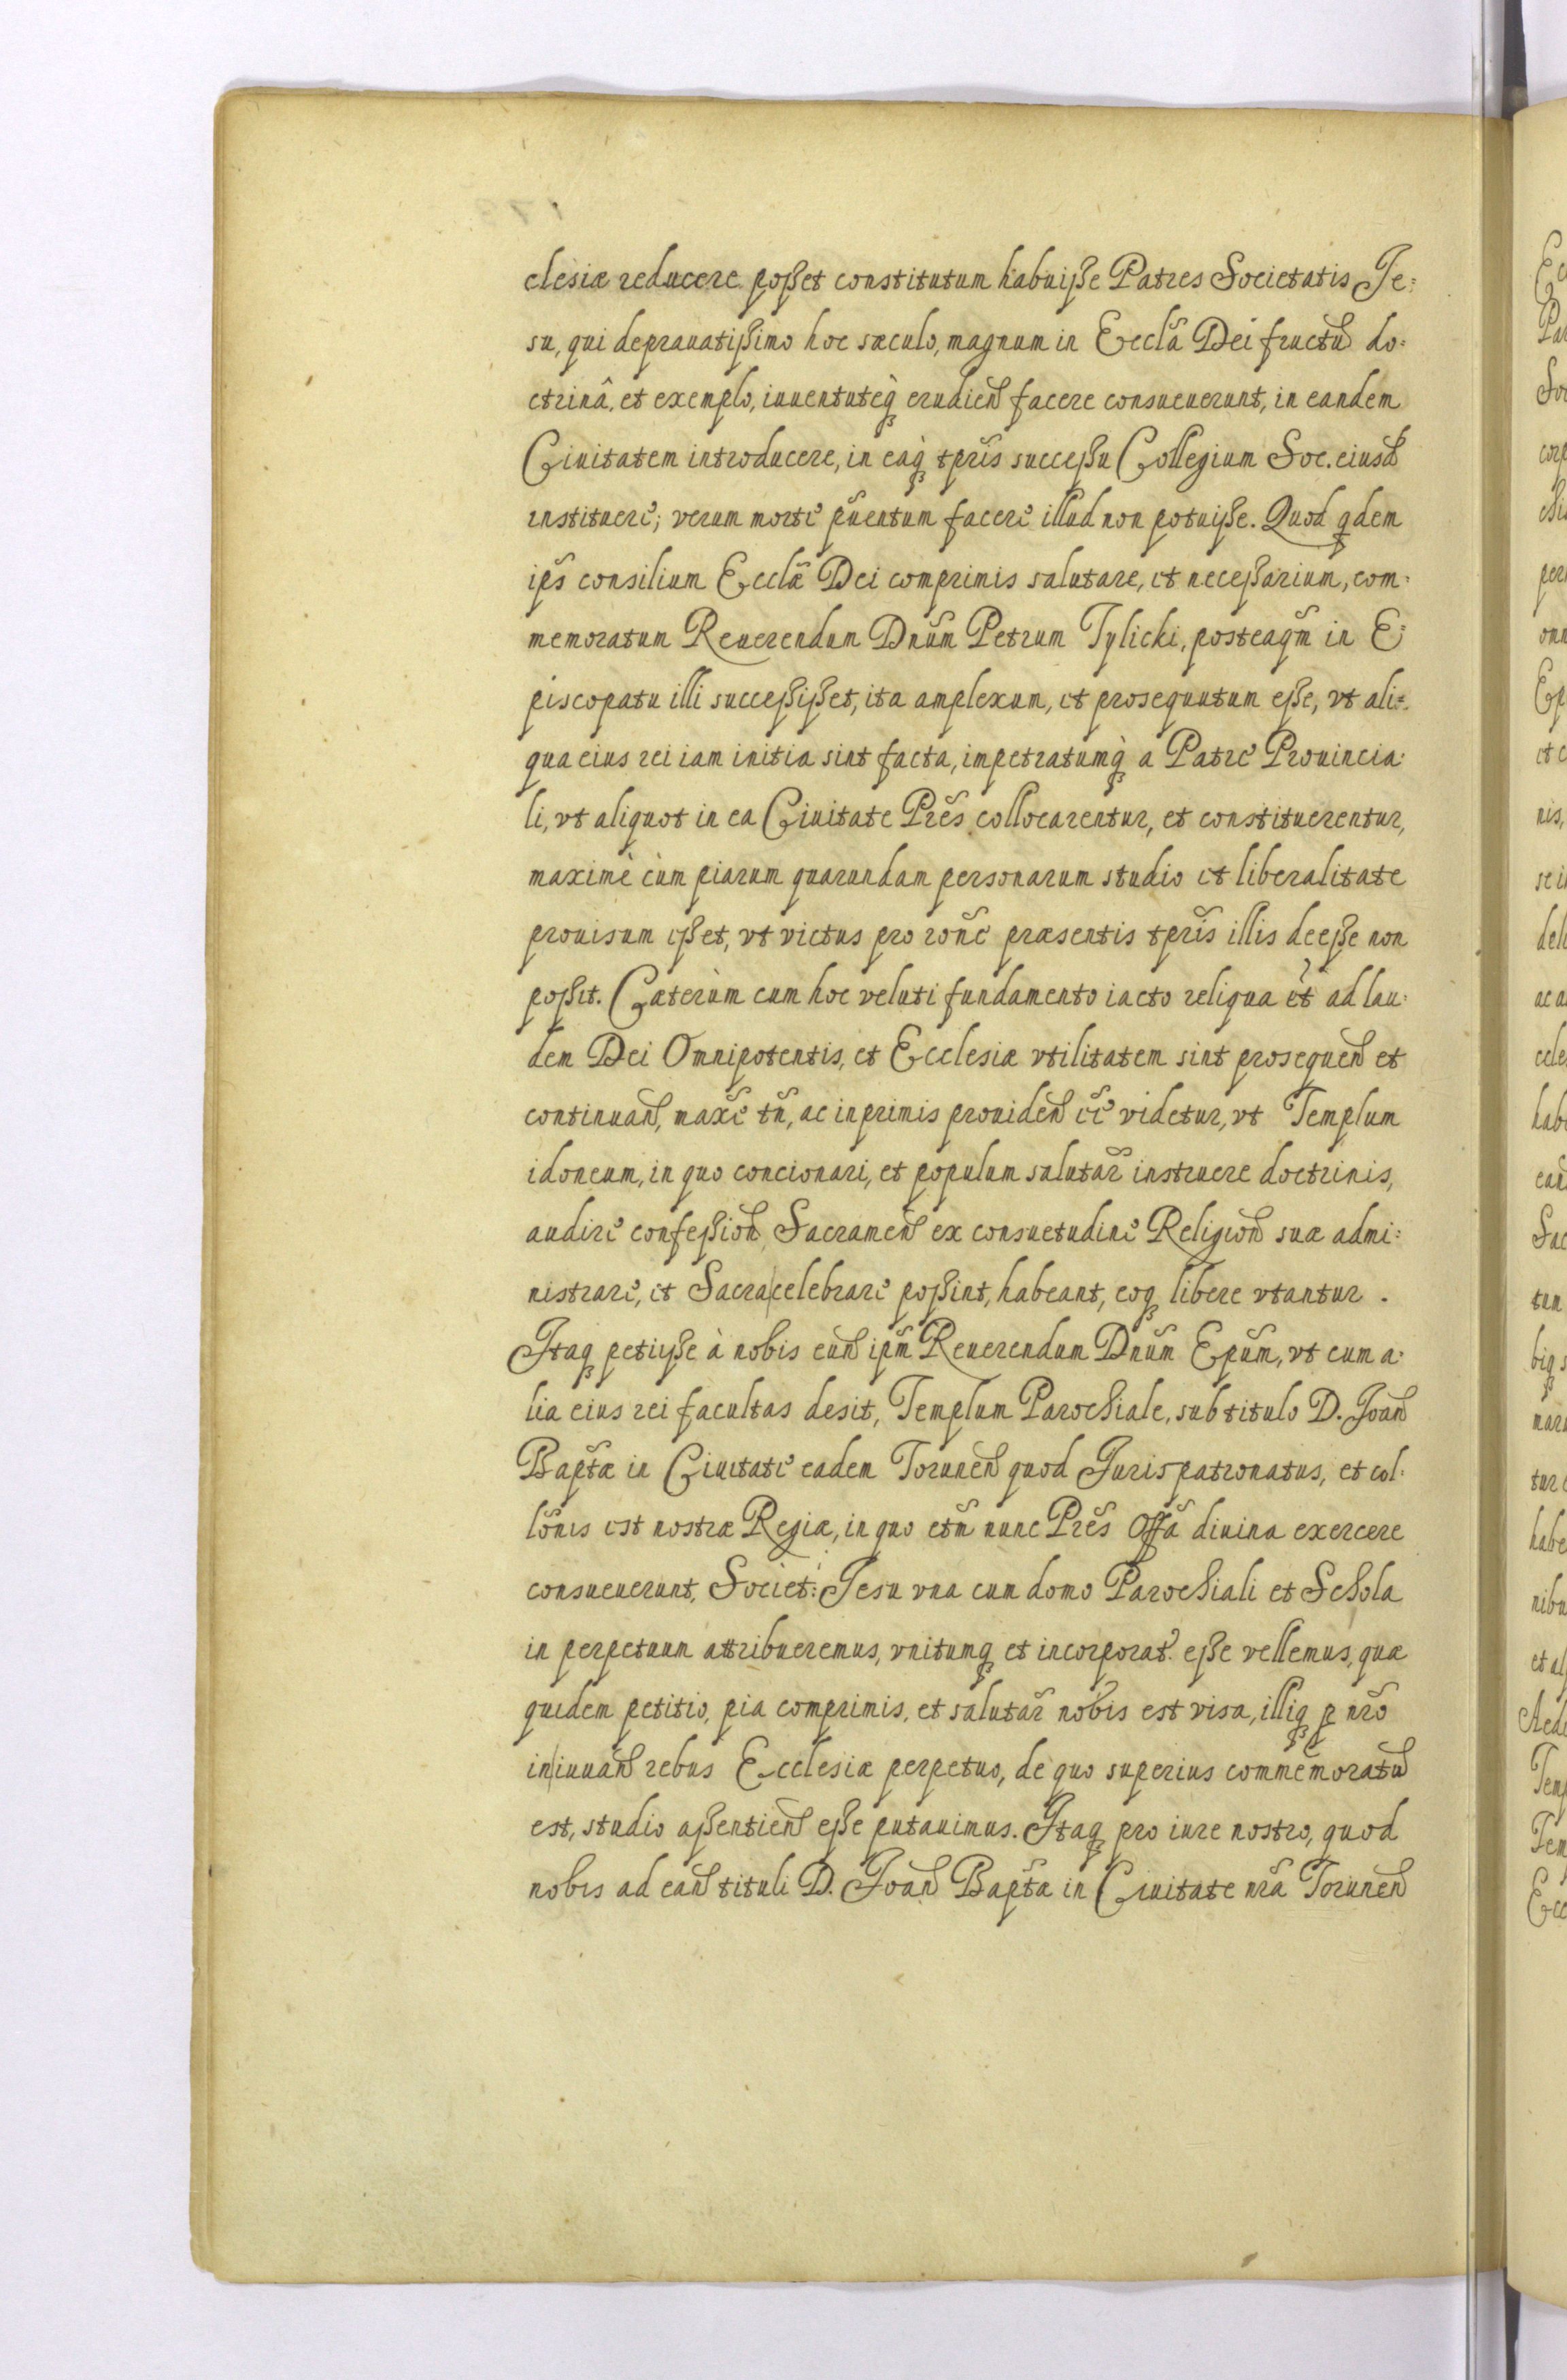 clesiæ reducere poßet constitutum habuiße Patres Societatis Je:
su, qui deprauatißimo hoc sæculo, magnum in Ecclã Dei fructũ do:
ctrinâ, et exemplo, iuuentuteq̀ erudieñ facere consueuerunt, in eandem
Ciuitatem introducere, in eaq̀ tpr̃is succeßu Collegium Soc. eiusd
instituere; verum morte pũentum facere illud non potuiße. Quod qdem
ip̃s consilium Ecclæ̃ Dei comprimis salutare, et neceßarium, com:
memoratum Reuerendum Dnũm Petrum Tylicki, posteaq̃m in E:
piscopatu illi succeßißet, ita amplexum, et prosequutum eße, vt ali:
qua eius rei iam initia sint facta, impetratumq̀ a Patre Prouincia:
li, vt aliquot in ea Ciuitate Prẽs collocarentur, et constituerentur,
maximè cùm piarum quarundam personarum studio et liberalitate
prouisum eßet, vt victus pro roñe præsentis tpr̃is illis deeße non
poßit. Cæterùm cum hoc veluti fundamento iacto reliqua et̃ ad lau:
dem Dei Omnipotentis, et Ecclesiæ vtilitatem sint prosequeñ et
continuañ, max̃e tñ, ac inprimis prouideñ eẽ videtur, vt Templum
idoneum, in quo concionari, et populum salutar̃ instruere doctrinis,
audire confeßioñ Sacrameñ ex consuetudine Religioñ suæ admi:
nistrare, et Sacra|celebrare poßint, habeant, eoq libere vtantur.
Itaq petiyße à nobis euñ ipm̃ Reuerendum Dnũm Epũm, vt cum a:
lia eius rei facultas desit, Templum Parochiale, sub titulo D. Joañ
Bap̃tæ in Ciuitate eadem Toruneñ quod Jurispatronatus, et col:
lõnis est nostræ Regiæ, in quo etm̃ nunc Prẽs Offã diuina exercere
consueuerunt, Societ: Jesu vna cum domo Parochiali et Schola
in perpetuum attribueremus, vnitumq et incorporat. eße vellemus, quæ
quidem petitio, pia comprimis, et salutar̃ nobis est visa, illiq p nrõ
in|iuuañ rebus Ecclesiæ perpetuo, de quo superius commemoratũ
est, studio aßentieñ eße putauimus. Itaq pro iure nostro, quod
nobis ad eañ tituli D. Joañ Bap̃tæ in Ciuitate nrã Toruneñ